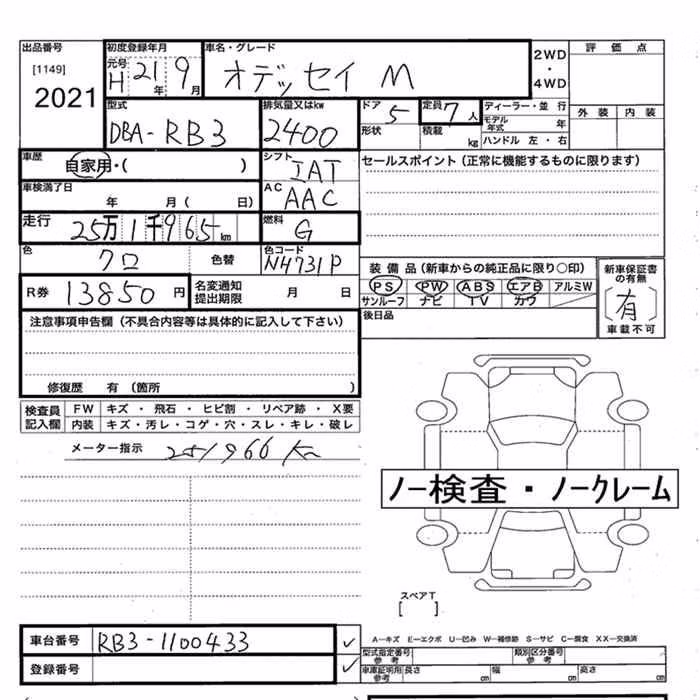 出品番号
[1149]
2021
初度登録年月
元号
H 21年 9月
車名・グレード
オデッセイ M
2WD
・
4WD
評価点
外装 内装
型式
DBA-RB3
排気量又はkw
2400
ドア
5
形状
定員
7人
積載
kg
ディーラー・並行
モデル年式 年
ハンドル 左・右
車歴
自家用・( )
シフト
IAT
セールスポイント(正常に機能するものに限ります)
車検満了日
年 月( 日)
AC
AAC
走行
25万1千965km
燃料
G
色
クロ
色替
色コード
N4731P
装備品(新車からの純正品に限り○印)
PS PW ABS エアB アルミW
サンルーフ ナビ TV カワ
新車保証書の有無
[有]
車載不可
R券
13850円
名変通知
提出期限
月 日
後日品
注意事項申告欄(不具合内容等は具体的に記入して下さい)
修復歴 有(箇所 )
検査員
記入欄
FW キズ・飛石・ヒビ割・リペア跡・X要
内装 キズ・汚レ・コゲ・穴・スレ・キレ・破レ
メーター指示 251966 Km
ノー検査・ノークレーム
スペアT
[ ]
車台番号
RB3-1100433
登録番号
A―キズ E―エクボ U―凹み W―補修跡 S―サビ C―腐食 XX―交換済
型式指定番号
参考
類別区分番号
参考
車庫証明用
参考
長さ cm 幅 cm 高さ cm